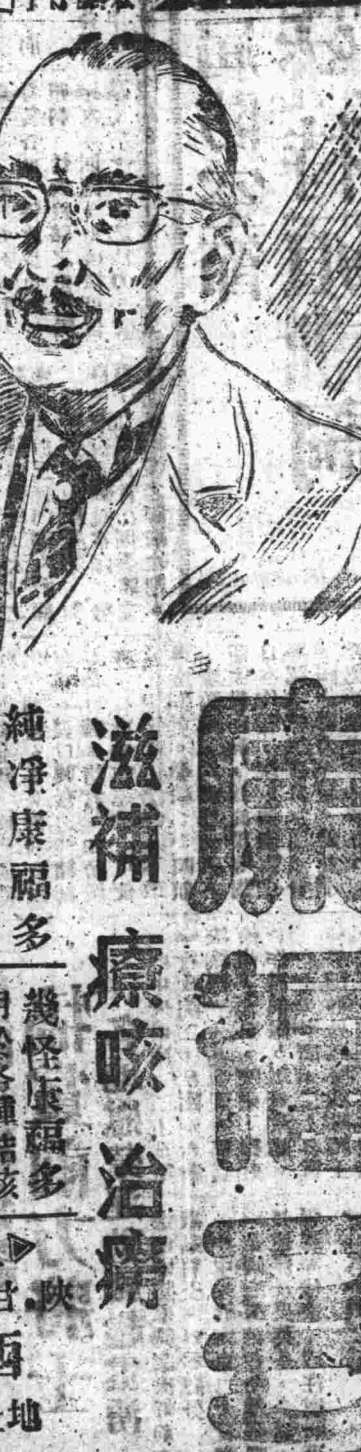 康福多
滋補 療咳 治癆
純淨康福多
幾怪康福多
陝
地